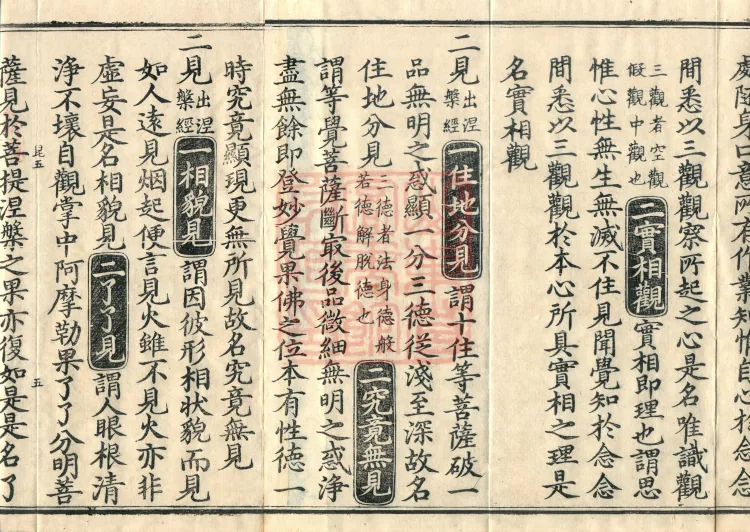 處陰界口意所有作業知惟自心於念念
間悉以三觀觀察所起之心是名唯識觀
三觀者空觀假觀中觀也 二實相觀 實相即理也謂思
惟心性無生無滅不住見聞覺知於念念
間悉以三觀觀於本心所具實相之理是
名實相觀
二見 出涅槃經 一住地分見 謂十住等菩薩破一
品無明之惑顯一分三德從淺至深故名
住地分見 三德者法身德般若德解脫德也 二究竟無見
謂等覺菩薩斷最後品微細無明之惑淨
盡無餘即登妙覺果佛之位本有性德一
時究竟顯現更無所見故名究竟無見
二見 出涅槃經 一相貌見 謂因彼形相狀貌而見
如人遠見烟起便言見火雖不見火亦非
虛妄是名相貌見 二了了見 謂人眼根清
淨不壞自觀掌中阿摩勒果了了分明菩
薩見於菩提涅槃之果亦復如是是名了
五